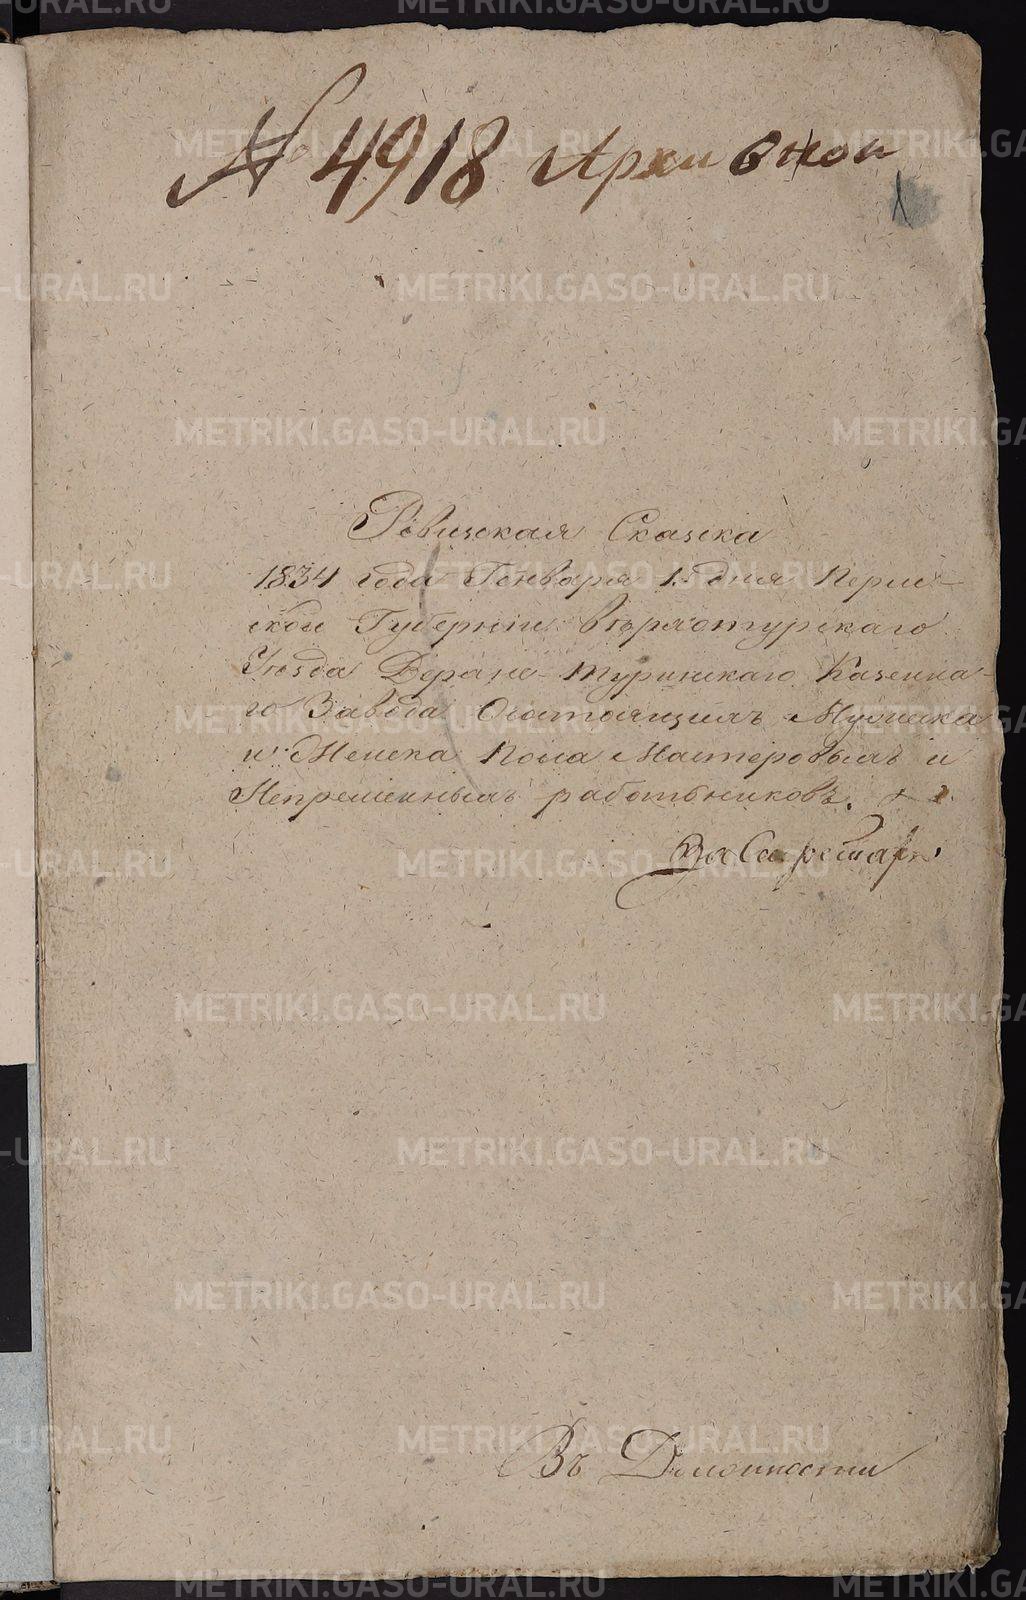 № 4918 Архивной
1
Ревизская Сказка
1834 года Генваря 1. дня Перм-
ской Губернии Верхотурскаго
Уезда Верхне-Туринскаго Казенна-
го Завода О состоящихъ Мужеска
и Женска пола Мастеровыхъ и
Непременныхъ работниковъ.
За Секретаря
Въ Должности
METRIKI.GASO-URAL.RU